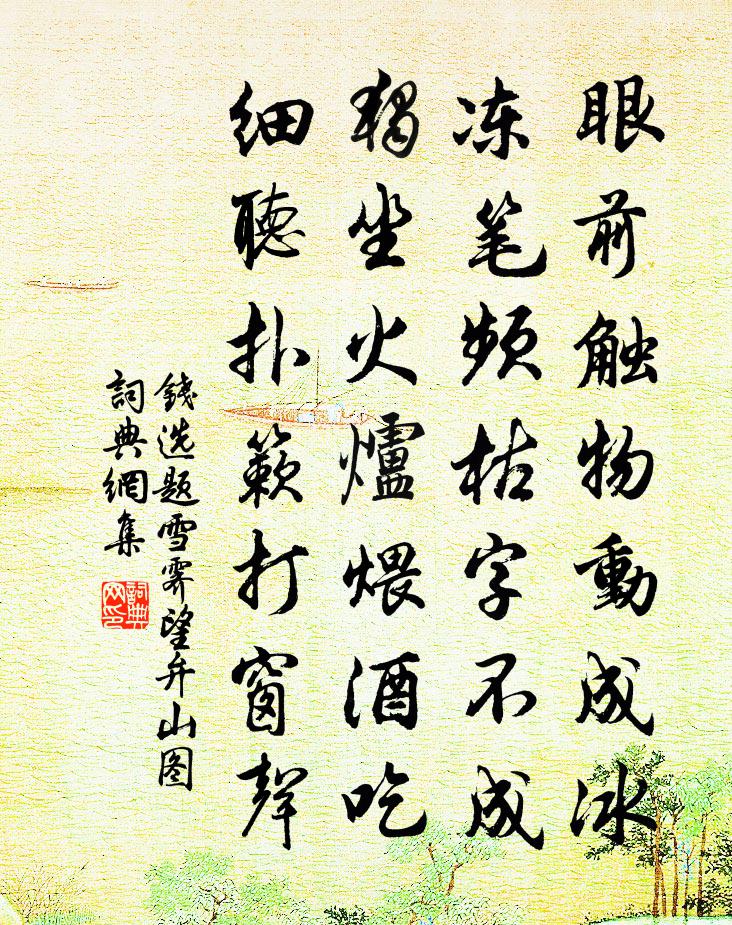 眼前触物動成冰
冻笔频枯字不成
獨坐火爐煨酒吃
细聽扑簌打窗聲
錢选题雪霁望弁山图
詞典網集
詞典网印